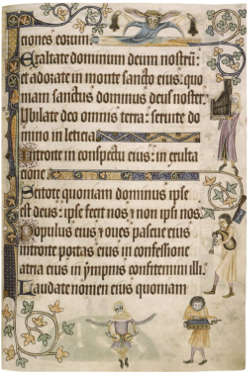 ciones eorum.
Exaltate dominum deum nostrum:
et adorate in monte sancto eius: quo
niam sanctus dominus deus noster.
Iubilate deo omnis terra: seruite do
mino in leticia
Introite in conspectu eius: in exulta
cione.
Scitote quoniam dominus ipse
est deus: ipse fecit nos ⁊ non ipsi nos.
Populus eius ⁊ oues pascue eius
introite portas eius in confessione
atria eius in ympnis confitemini illi.
Laudate nomen eius quoniam